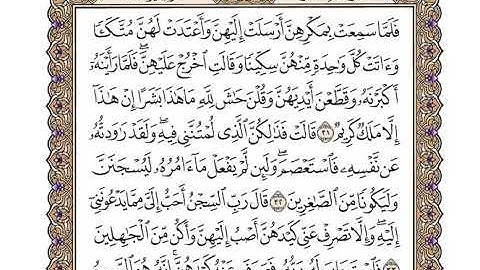 فَلَمَّا سَمِعَتْ بِمَكْرِهِنَّ أَرْسَلَتْ إِلَيْهِنَّ وَأَعْتَدَتْ لَهُنَّ مُتَّكَـًٔا
وَءَاتَتْ كُلَّ وَٰحِدَةٍ مِّنْهُنَّ سِكِّينًا وَقَالَتِ ٱخْرُجْ عَلَيْهِنَّ ۖ فَلَمَّا رَأَيْنَهُۥٓ
أَكْبَرْنَهُۥ وَقَطَّعْنَ أَيْدِيَهُنَّ وَقُلْنَ حَٰشَ لِلَّهِ مَا هَٰذَا بَشَرًا إِنْ هَٰذَآ
إِلَّا مَلَكٌ كَرِيمٌ ٣١ قَالَتْ فَذَٰلِكُنَّ ٱلَّذِى لُمْتُنَّنِى فِيهِ ۖ وَلَقَدْ رَٰوَدتُّهُۥ
عَن نَّفْسِهِۦ فَٱسْتَعْصَمَ ۖ وَلَئِن لَّمْ يَفْعَلْ مَآ ءَامُرُهُۥ لَيُسْجَنَنَّ
وَلَيَكُونًا مِّنَ ٱلصَّٰغِرِينَ ٣٢ قَالَ رَبِّ ٱلسِّجْنُ أَحَبُّ إِلَىَّ مِمَّا يَدْعُونَنِىٓ
إِلَيْهِ ۖ وَإِلَّا تَصْرِفْ عَنِّى كَيْدَهُنَّ أَصْبُ إِلَيْهِنَّ وَأَكُن مِّنَ ٱلْجَٰهِلِينَ